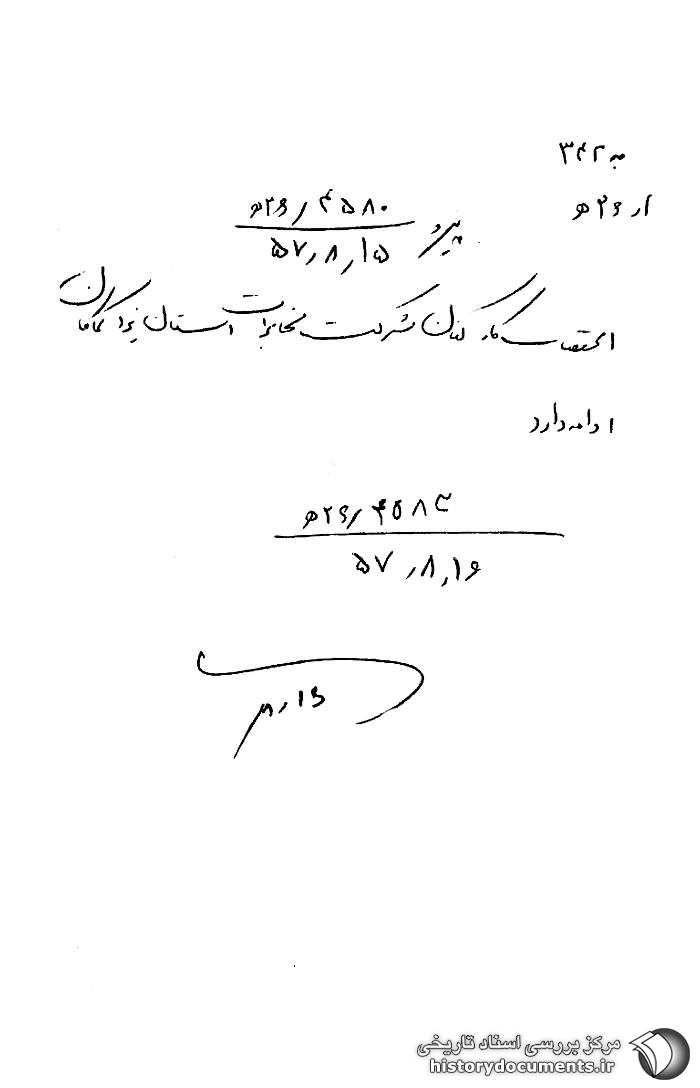 به ۳۴۲
از ۲۶ ه‍
پیرو ۴۵۸۰ / ۲۶ ه‍
۵۷٫۸٫۱۵
اعتصاب کارکنان شرکت مخابرات استان یزد کماکان
ادامه دارد
۴۵۸۳ / ۲۶ ه‍
۵۷٫۸٫۱۶
۸٫۱۶
مرکز بررسی اسناد تاریخی
historydocuments.ir